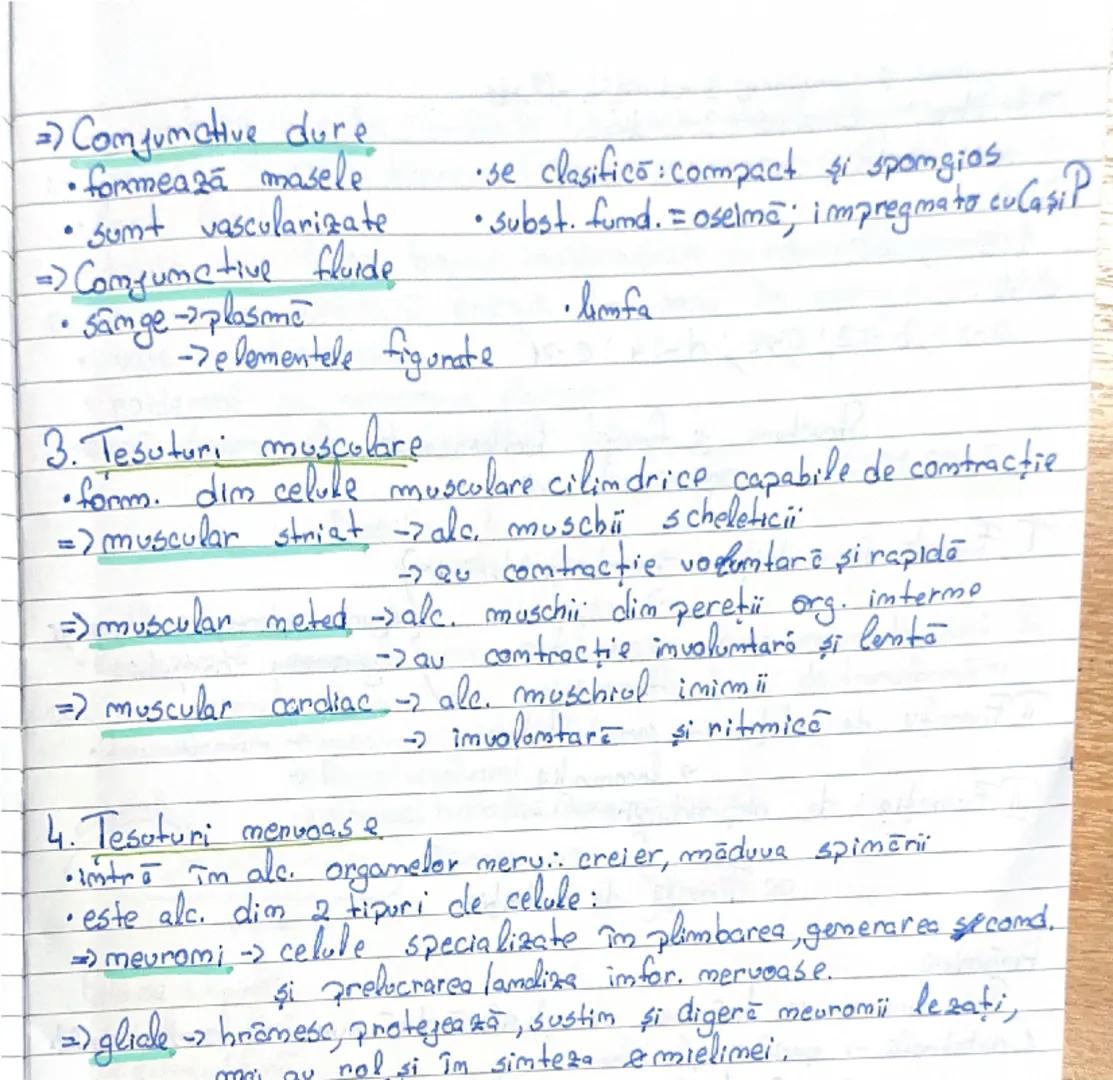 => Conjunctive dure
• formează oasele • se clasifică: compact și spongios
• sunt vascularizate • subst. fund. = oseină; impregnată cu Ca și P
=> Conjunctive fluide
• sânge -> plasmă • limfa
-> elementele figurate
3. Tesuturi musculare
• form. din celule musculare cilindrice capabile de contracție
=> muscular striat -> alc. muschii scheleticii
-> au contracție voluntară și rapidă
=> muscular neted -> alc. muschii din pereții org. interne
-> au contracție involuntară și lentă
=> muscular cardiac -> alc. muschiul inimii
-> involuntară și ritmică
4. Tesuturi nervoase
• intră în alc. organelor nerv.: creier, măduva spinării
• este alc. din 2 tipuri de celule:
=> neuroni -> celule specializate în plimbarea, generarea cond.
și prelucrarea/andiza infor. nervoase.
=> gliale -> hrănesc, protejează, sustin și digeră neuronii lezați,
mai au rol și în sinteza mielinei.